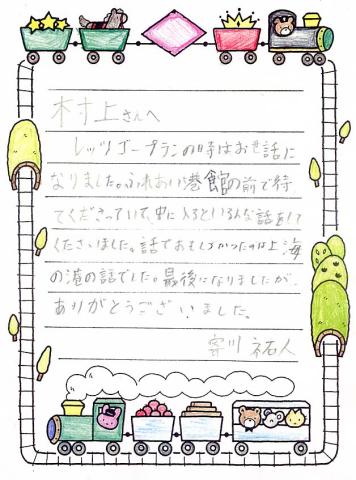 村上さんへ
レッツゴープランの時はお世話に
なりました。ふれあい港館の前で待
てくださっていて、中に入るといろんな話をして
くださいました。話でおもしろかったのは上海
の港の話でした。最後になりましたが、
ありがとうございました。
寄川 祐人